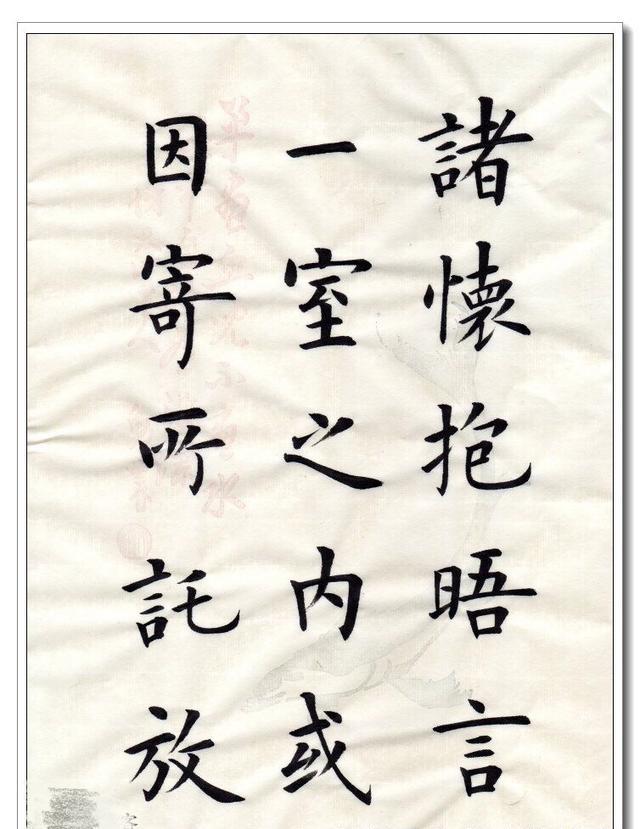 諸懷抱晤言
一室之内或
因寄所託放